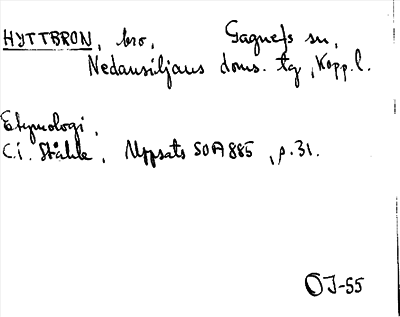 HYTTBRON, bro, Gagnefs sn,
Nedansiljans doms. tg, Kopp. l.
Etymologi,
C. I. Ståhle, Uppsats SOA 885, p. 31.
OJ-55